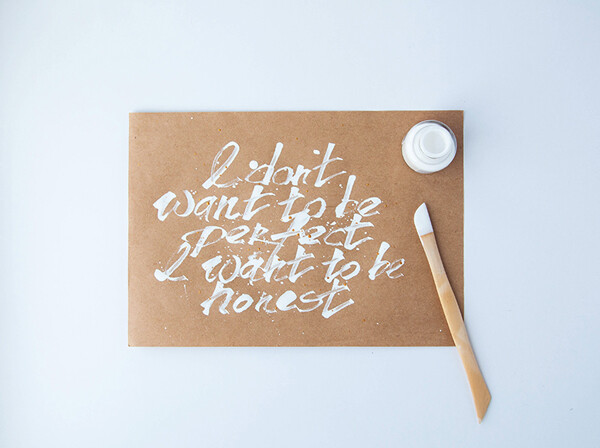 I don't
want to be
perfect
I want to be
honest